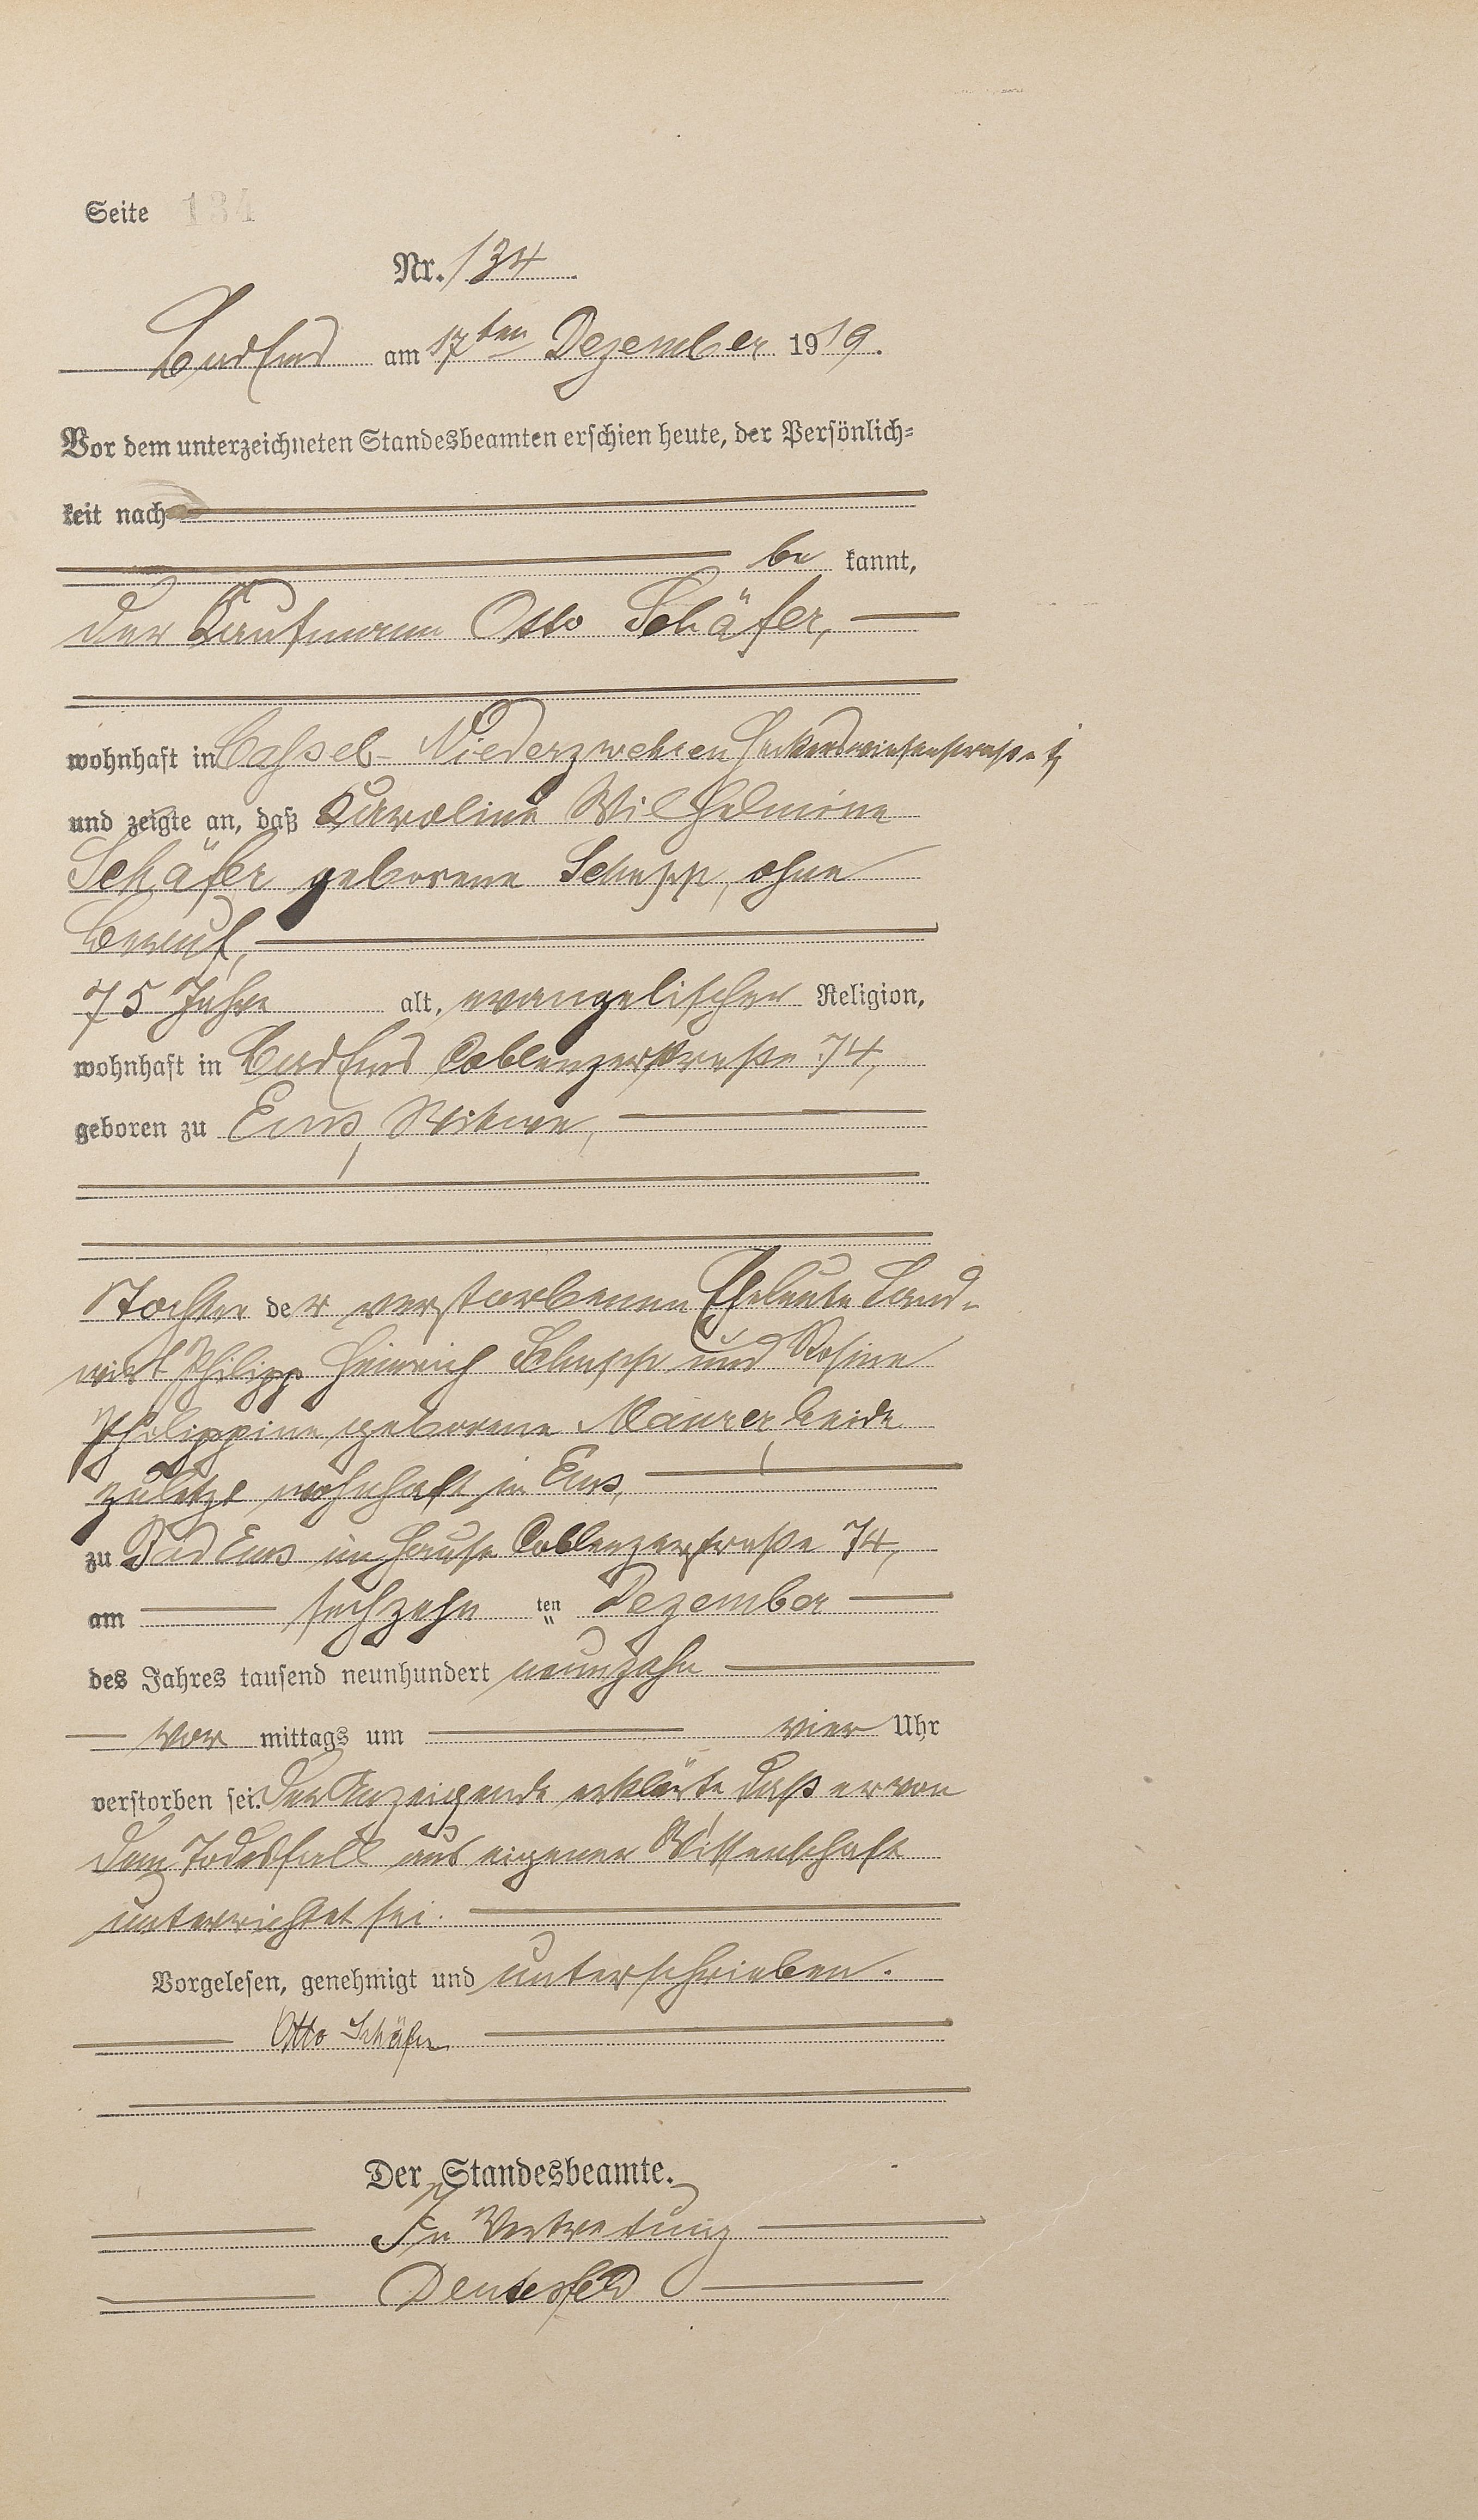 Seite 134
Nr. 134
Bad Ems am 17ten Dezember 1919.
Vor dem unterzeichneten Standesbeamten erschien heute, der Persönlich-
keit nach
be kannt,
der Kaufmann Otto Schäfer,
wohnhaft in Cassel-Niederzwehren
und zeigte an, daß Karoline Wilhelmine
Schäfer geborene Schupp, ohne
Beruf,
75 Jahre alt, evangelischer Religion,
wohnhaft in Bad Ems Coblenzerstraße 74,
geboren zu Ems, Witwe,
Tochter der verstorbenen Eheleute Land-
wirt Philipp Heinrich Schupp und Rosine
Philippine geborene Maurer, beide
zuletzt wohnhaft in Ems,
zu Bad Ems im Hause Coblenzerstraße 74,
am sechzehn ten Dezember
des Jahres tausend neunhundert neunzehn
Vor mittags um vier Uhr
verstorben sei. Der Anzeigende erklärte, daß er von
dem Todesfall aus eigener Wissenschaft
unterrichtet sei.
Vorgelesen, genehmigt und unterschrieben.
Otto Schäfer
Der Standesbeamte.
In Vertretung